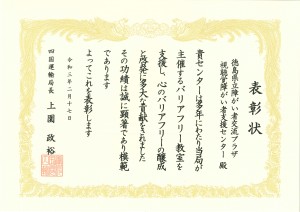 表彰状
徳島県立障がい者交流プラザ
視聴覚障がい者支援センター 殿
貴センターは多年にわたり当局が
主催するバリアフリー教室を
支援し、心のバリアフリーの醸成
と啓発に多大な貢献をされました
その功績は誠に顕著であり模範
であります
よってこれを表彰します
令和三年二月十七日
四国運輸局長 上園 政裕